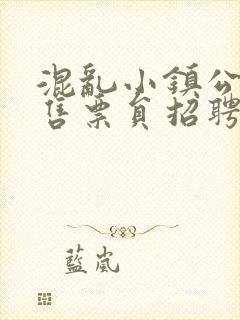 混亂小鎮公
售票員招聘
藍嵐